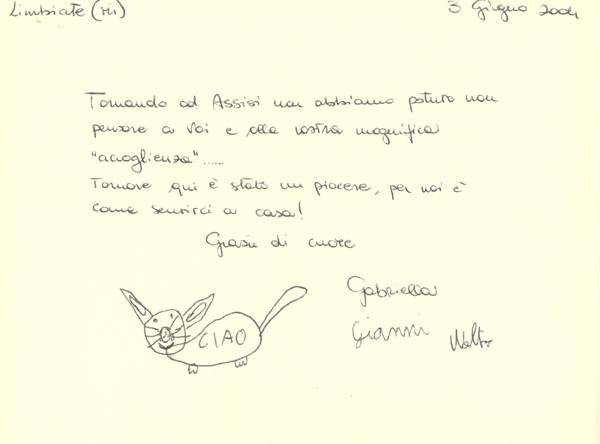 Limbiate (MI) 3 Giugno 2004
Tornando ad Assisi non abbiamo potuto non
pensare a Voi e alla vostra magnifica
"accoglienza"......
Tornare qui è stato un piacere, per noi è
come sentirci a casa!
Grazie di cuore
Gabriella
Gianni Walter
CIAO